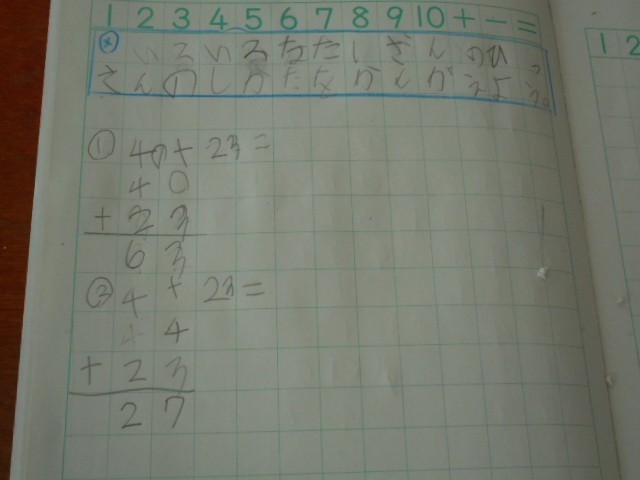 1 2 3 4 5 6 7 8 9 10 + − =
1 2
いろいろなたしざんのひっ
さんのしかたをかんがえよう。
① 40+23=
40
+23
63
② 4+23=
4
+23
27